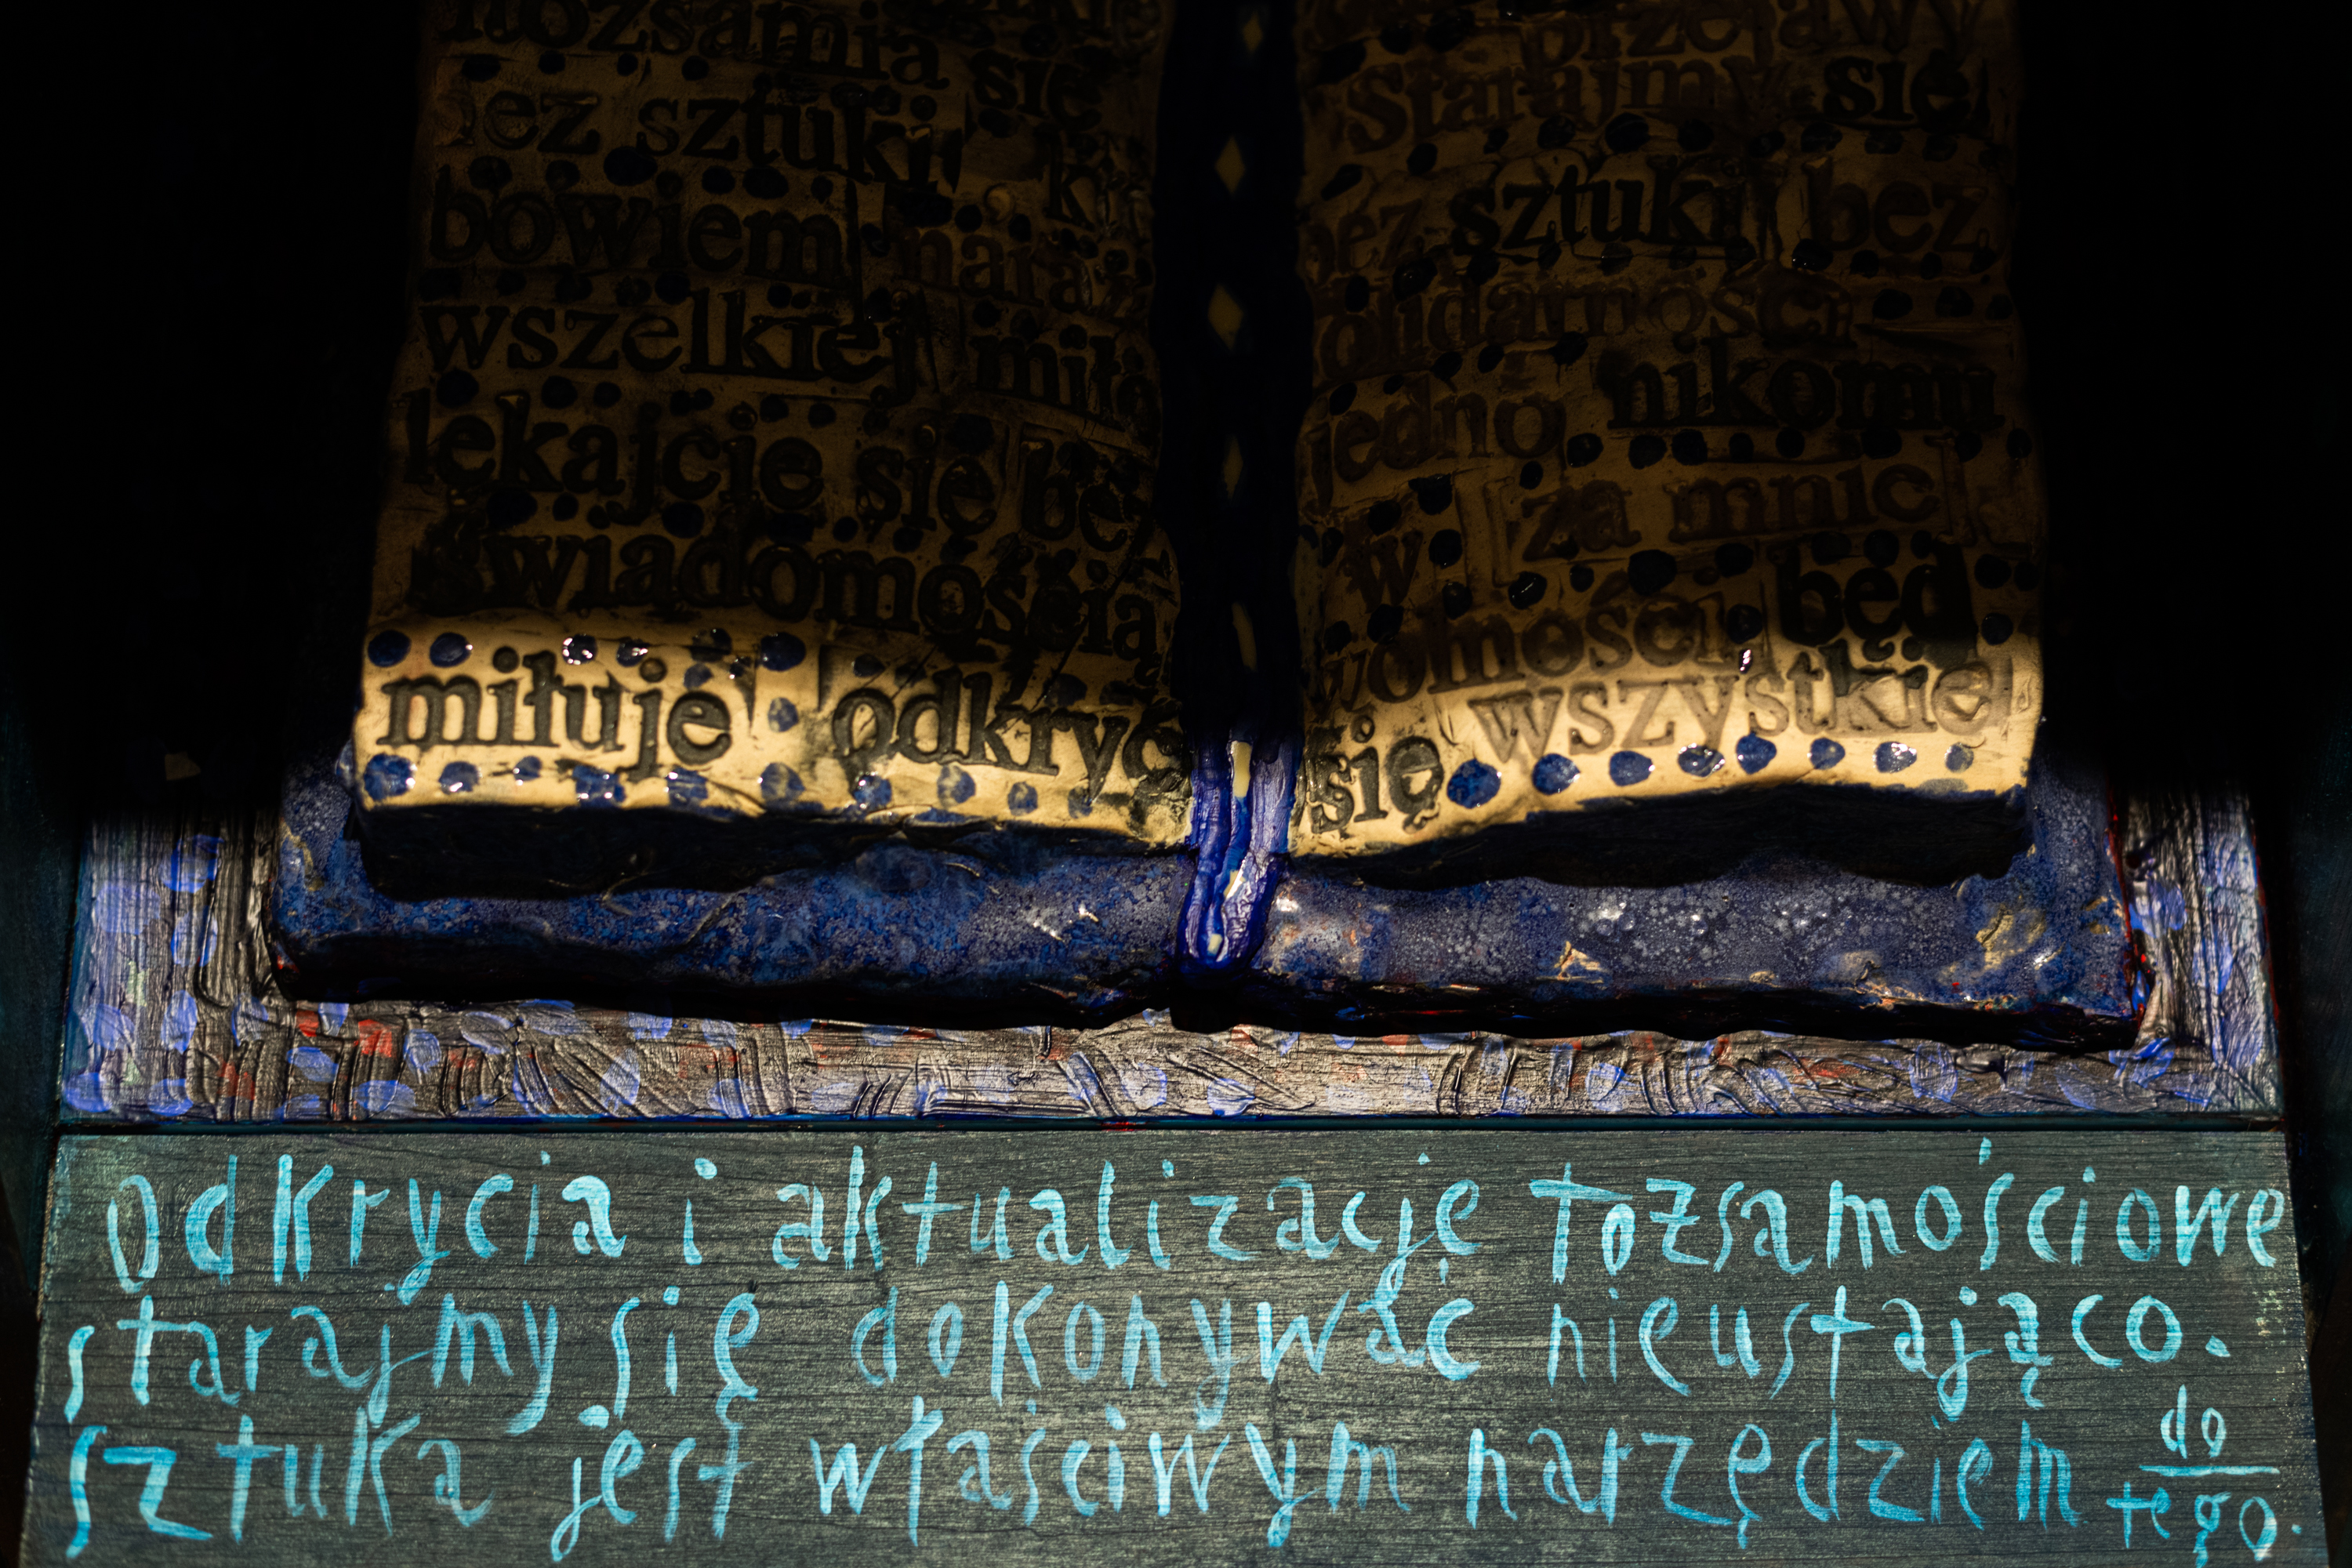 sztuki
bowiem naraz
wszelkiej miło
lękajcie się bez
świadomością
miłuje odkryć
przejawy
starajmy się
bez sztuki bez
solidarności
jedno nikomu
w za mnie
wolności będ
się wszystkie
Odkrycia i aktualizacje tożsamościowe
starajmy się dokonywać nieustająco.
sztuka jest właściwym narzędziem do tego.